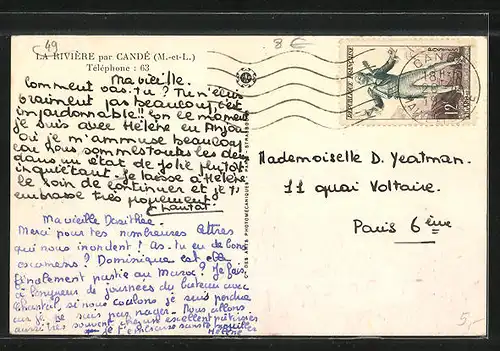 49
8 €
LA RIVIÈRE par CANDÉ (M.-et-L.)
Téléphone : 63
Ma vieille.
Comment vas-tu ? Tu n'écris
vraiment pas beaucoup, c'est
impardonnable!! En ce moment
je suis avec Hélène en Anjou
où je m'ammuse beaucoup
car nous sommes toutes les deux
dans un état de folie plutôt
inquiétant. Je laisse à Hélène
le soin de continuer et je t'
embrasse très
Chantal
Ma vieille Dorithée
Merci pour tes nombreuses lettres
qui nous inondent ! As-tu eu de bons
examens ? Dominique est elle
finalement partie au Maroc ? Je fais
à longueur de journées du bateau avec
Chantal, si nous coulons je suis perdue
car je ne sais pas nager. Nous allons
aussi très souvent
je t'embrasse sans te mouiller
Hélène
RÉPUBLIQUE FRANÇAISE
POSTES
12
CANDÉ
18H
Mademoiselle D. Yeatman.
11 quai Voltaire.
Paris 6ème
5,-